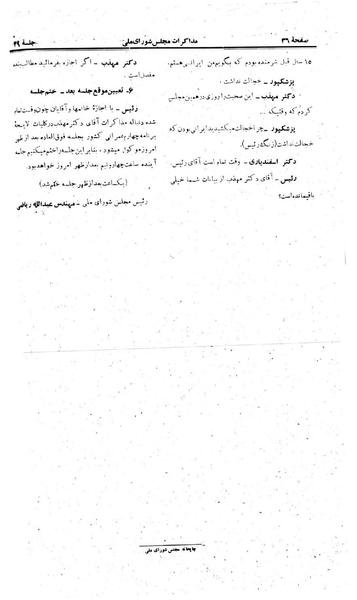 صفحهٔ ۳۶
مذاکرات مجلس شورای ملی
جلسهٔ ۲۹
۱۵ سال قبل شرمنده بودم که بگویم من ایرانی هستم.
پزشکپور ـ خجالت نداشت.
دکتر مهذب ـ این صحبت را روزی در همین مجلس
کردم که وقتیکه ...
پزشکپور ـ چرا خجالت میکشیدید ایرانی بودن که
خجالت نداشت (زنگ رئیس).
دکتر اسفندیاری ـ وقت تمام است آقای رئیس.
رئیس ـ آقای دکتر مهذب از بیانات شما خیلی
باقیمانده است؟
دکتر مهذب ـ اگر اجازه بفرمائید مطالب بنده
مفصل است.
۶ـ تعیین موقع جلسه بعد ـ ختم جلسه
رئیس ـ با اجازهٔ خانمها و آقایان چون وقت تمام
شده دنباله مذاکرات آقای دکتر مهذب در کلیات لایحهٔ
برنامه چهارم عمرانی کشور بجلسه فوق العاده بعد از ظهر
امروز موکول میشود، بنابر این جلسه را ختم میکنیم جلسه
آینده ساعت چهار و نیم بعد از ظهر امروز خواهد بود.
(یکساعت بعد از ظهر جلسه ختم شد)
رئیس مجلس شورای ملی ـ مهندس عبدالله ریاضی
چاپخانه مجلس شورای ملی